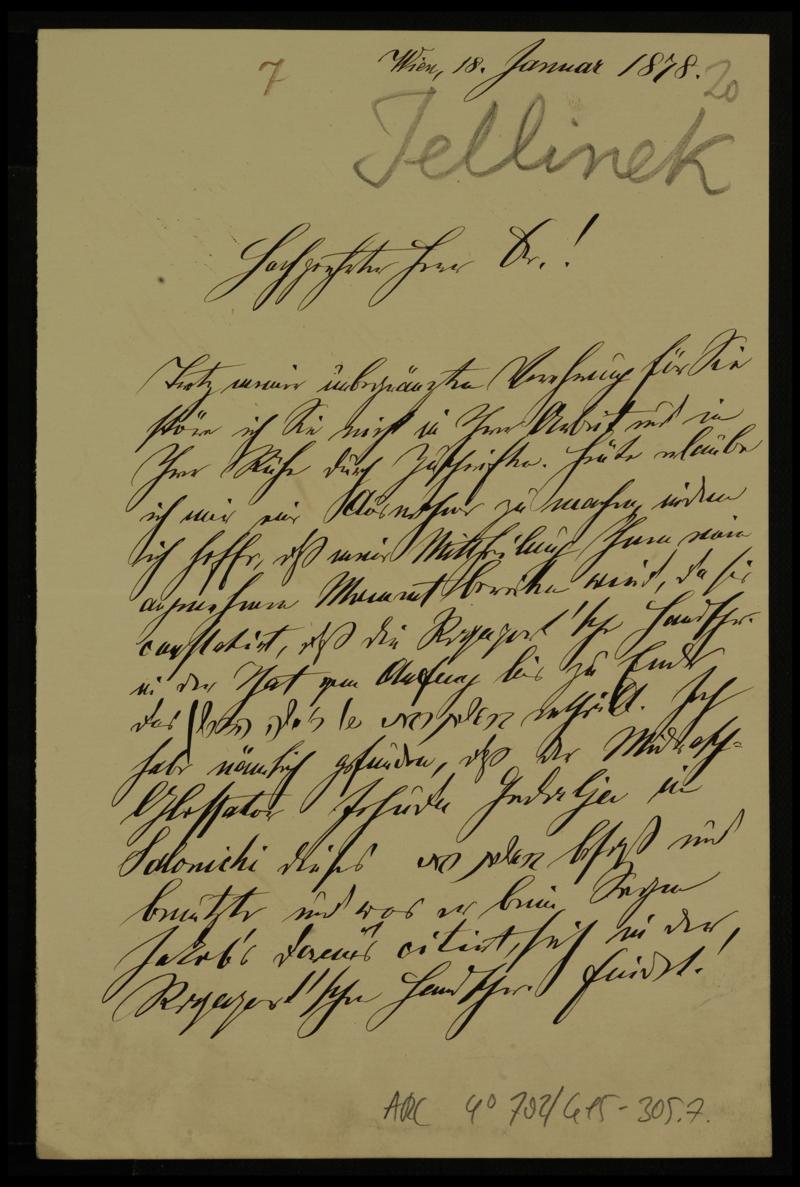 7
Wien, 18. Januar 1878.
20
Jellinek
Hochgeehrter Herr Dr.!
Trotz meiner unbegränzten Verehrung für Sie
störe ich Sie nicht in Ihrer Arbeit und in
Ihrer Ruhe durch Zuschriften. Heute erlaube
ich mir eine Ausnahme zu machen, indem
ich hoffe, daß meine Mittheilung Ihnen einen
angenehmen Moment bereiten wird, da sie
constatirt, daß die Rapaport'sche Handschr.
in der That vom Anfang bis zu Ende
das enthält. Ich
habe nämlich gefunden, daß der Midrasch-
Glossator Jehuda Gedalja in
Salonichi dieses besaß und
benutzte und was er beim Segen
Jakob's daraus citirt, sich in der
Rapaport'schen Handschr. findet!
ARC 4° 792/G15-305.7.